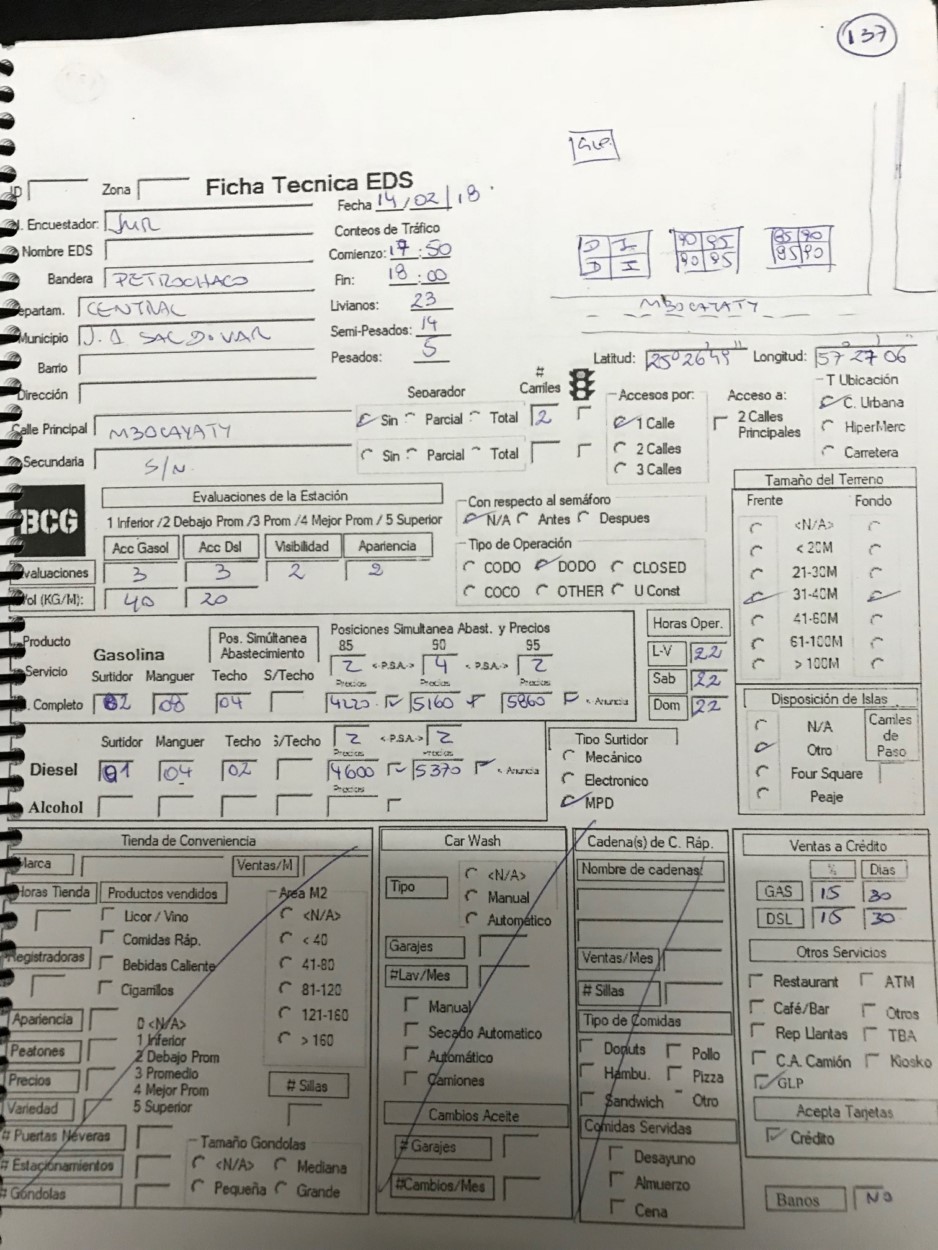 137
GLP
ID Zona Ficha Tecnica EDS
Fecha 14/02/18
Encuestador: JMR
Conteos de Tráfico
Nombre EDS
Comienzo: 17:50
D I 90 95 85 90
D I 90 95 85 90
Bandera PETROCHACO
Fin: 18:00
epartam. CENTRAL
Livianos: 23
MBOCAYATY
Municipio J. A SALDIVAR
Semi-Pesados: 14
Barrio
Pesados: 5
Latitud: 25º 26' 49" Longitud: 57 27 06
Dirección
Separador # Carriles Accesos por: Acceso a: T Ubicación
Calle Principal MBOCAYATY Sin Parcial Total 2 1 Calle 2 Calles Principales C. Urbana
2 Calles HiperMerc
Secundaria S/N. Sin Parcial Total 3 Calles Carretera
BCG
Evaluaciones de la Estación
Con respecto al semáforo
N/A Antes Despues
1 Inferior /2 Debajo Prom /3 Prom /4 Mejor Prom / 5 Superior
Acc Gasol Acc Dsl Visibilidad Apariencia
valuaciones 3 3 2 2
ol (KG/M): 40 20
Tipo de Operación
CODO DODO CLOSED
COCO OTHER U Const
Tamaño del Terreno
Frente Fondo
<N/A>
< 20M
21-30M
31-40M
41-60M
61-100M
> 100M
Producto
Servicio
. Completo
Gasolina
Pos. Simúltanea Abastecimiento
Posiciones Simultanea Abast. y Precios
85 90 95
2 <-P.S.A.-> 4 <-P.S.A.-> 2
Surtidor Manguer Techo S/Techo Precios Precios Precios
02 08 04 4220 5160 5860 <- Anuncia
Horas Oper.
L-V 22
Sab 22
Dom 22
Surtidor Manguer Techo S/Techo 2 <-P.S.A.-> 2
Diesel 01 04 02 4600 5370 <- Anuncia
Precios
Alcohol
Tipo Surtidor
Mecánico
Electronico
MPD
Disposición de Islas
N/A
Otro
Four Square
Peaje
Carriles de Paso
Tienda de Conveniencia
Marca Ventas/M
Horas Tienda Productos vendidos
Licor / Vino
Comidas Ráp.
Registradoras
Bebidas Caliente
Cigarrillos
Area M2
<N/A>
< 40
41-80
81-120
121-160
> 160
Apariencia
Peatones
Precios
Variedad
0 <N/A>
1 Inferior
2 Debajo Prom
3 Promedio
4 Mejor Prom
5 Superior
# Sillas
# Puertas Neveras
# Estacionamientos
# Góndolas
Tamaño Gondolas
<N/A> Mediana
Pequeña Grande
Car Wash
Tipo
<N/A>
Manual
Automático
Garajes
#Lav/Mes
Manual
Secado Automatico
Automático
Camiones
Cambios Aceite
# Garajes
#Cambios/Mes
Cadena(s) de C. Ráp.
Nombre de cadenas:
Ventas/Mes
# Sillas
Tipo de Comidas
Donuts Pollo
Hambu. Pizza
Sandwich Otro
Comidas Servidas
Desayuno
Almuerzo
Cena
Ventas a Crédito
% Dias
GAS 15 30
DSL 15 30
Otros Servicios
Restaurant ATM
Café/Bar Otros
Rep Llantas TBA
C.A. Camión Kiosko
GLP
Acepta Tarjetas
Crédito
Banos NO